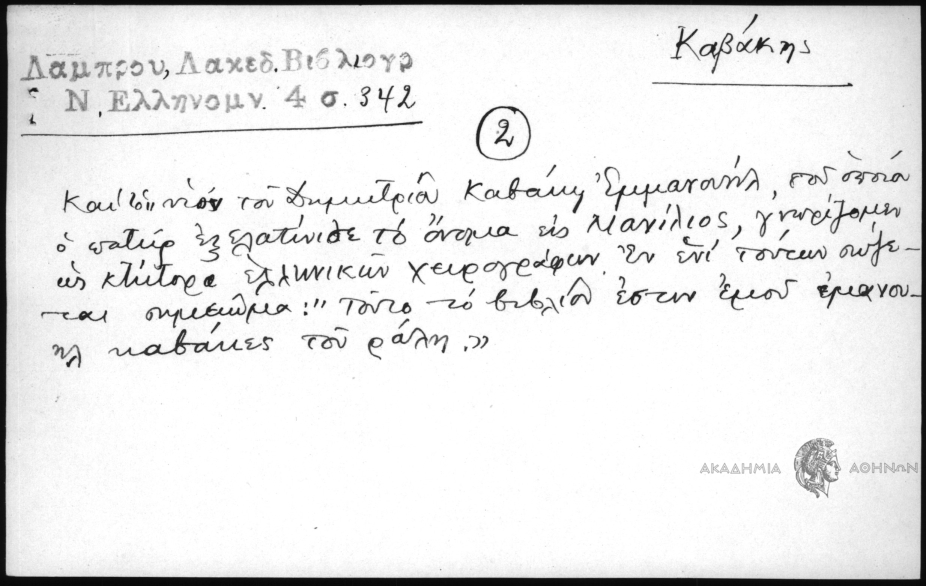 Καβάκης
Λαμπρου, Λακεδ. Βιβλιογρ
Ν. Ελληνομν. 4 σ. 342
2
Καὶ τὸν υἱὸν τοῦ Δημητρίου Καβάκη Ἐμμανουὴλ, τοῦ ὁποίου
ὁ πατὴρ ἐξελατίνισε τὸ ὄνομα εἰς Μανίλιος, γνωρίζομεν
ὡς κτήτορα ἑλληνικῶν χειρογράφων. Ἐν ἑνὶ τούτων σώζε-
ται σημείωμα: "Τοῦτο τὸ βιβλίον ἐστιν ἐμοῦ ἐμανου-
ηλ καβάκες τοῦ ράλη."
ΑΚΑΔΗΜΙΑ ΑΘΗΝΩΝ